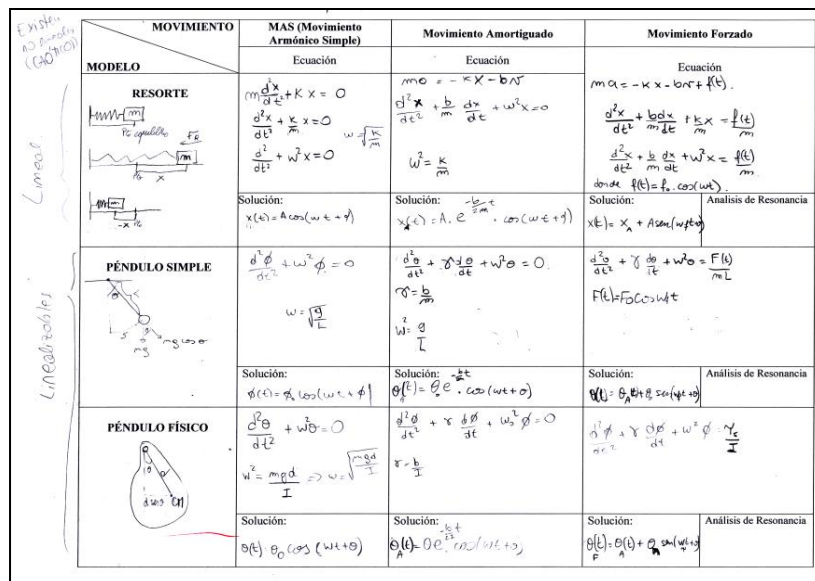 Existen
no lineales
(CAÓTICO)
MOVIMIENTO
MODELO
MAS (Movimiento
Armónico Simple)
Movimiento Amortiguado
Movimiento Forzado
Ecuación
Ecuación
Ecuación
Lineal
RESORTE
m
PE equilibrio
FR
m
PE
x
m
-x PE
m d²x/dt² + K x = 0
d²x/dt² + k/m x = 0
w = √K/m
d²/dt² + w²x = 0
ma = -kx - bv
d²x/dt² + b/m dx/dt + w²x = 0
w² = k/m
ma = -kx - bv + f(t).
d²x/dt² + b/m dx/dt + k/m x = f(t)/m
d²x/dt² + b/m dx/dt + w²x = f(t)/m
donde f(t) = f₀ . cos(wt).
Solución:
x(t) = A cos(wt + φ)
Solución:
x_A(t) = A. e^(-b/2m t) . cos(wt + φ)
Solución:
x(t) = x_A + A sen(w_f t + θ)
Analisis de Resonancia
Linealizables
PÉNDULO SIMPLE
θ
L
S
mg
mg cos θ
d²φ/dt² + w²φ = 0
w = √g/L
d²θ/dt² + γ dθ/dt + w²θ = 0.
γ = b/m
w² = g/L
d²θ/dt² + γ dθ/dt + w²θ = F(t)/mL
F(t) = F₀ cos w_f t
Solución:
φ(t) = φ₀ cos(wt + φ)
Solución:
. cos(wt + θ)
Solución:
Análisis de Resonancia
PÉNDULO FÍSICO
θ
d
d sen θ
CM
d²θ/dt² + w²θ = 0
w² = mgd/I => w = √mgd/I
d²φ/dt² + γ dφ/dt + w₀²φ = 0
γ = b/I
d²φ/dt² + γ dφ/dt + w²φ =
Solución:
θ(t) = θ₀ cos (wt + θ)
Solución:
Solución:
Análisis de Resonancia